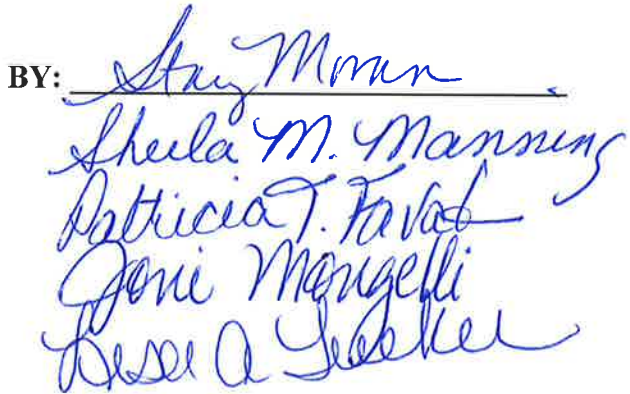 BY: Stacy Moran
Sheila M. Manning
Patricia T. Favat
Joni Mongelli
A